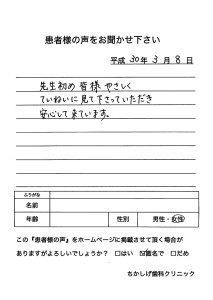 患者様の声をお聞かせ下さい
平成 30年 3月 8日
先生初め 皆様 やさしく
ていねいに見て下さっていただき
安心して来ています。
ふりがな
名前
年齢 性別 男性・女性
この『患者様の声』をホームページに掲載させて頂く場合が
ありますがよろしいでしょうか？ □はい ☑匿名で □だめ
ちかしげ歯科クリニック